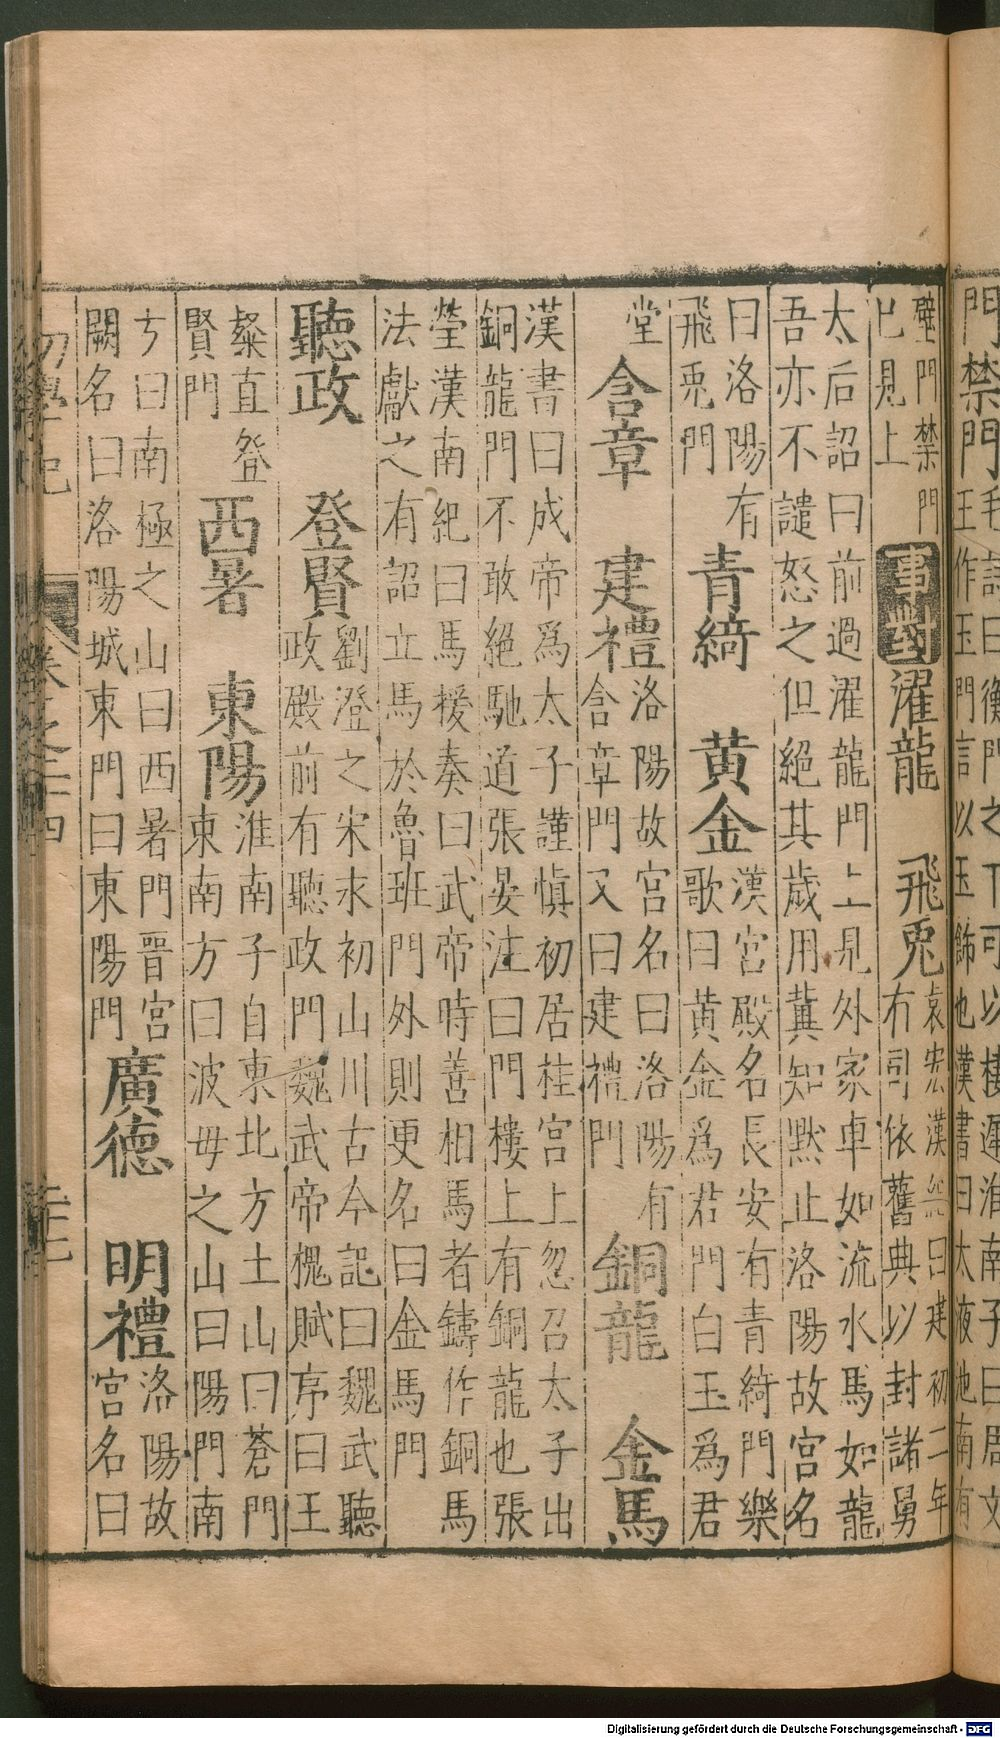 門禁門毛詩曰衡門之下可以棲遲淮南子曰周文
王作玉門言以玉飾也漢書曰太液池南有
璧門禁門
已見上
事對
濯龍 飛兎
袁宏漢紀曰建初二年
有司依舊典以封諸舅
太后詔曰前過濯龍門上見外家車如流水馬如龍
吾亦不譴怒之但絕其歲用冀知黙止洛陽故宮名
曰洛陽有
飛兎門
青綺 黄金
漢宮殿名長安有青綺門樂
歌曰黄金爲君門白玉爲君
堂
含章 建禮
洛陽故宮名曰洛陽有
含章門又曰建禮門
銅龍 金馬
漢書曰成帝爲太子謹慎初居桂宮上忽召太子出
銅龍門不敢絕馳道張晏注曰門樓上有銅龍也張
瑩漢南紀曰馬援奏曰武帝時善相馬者鑄作銅馬
法獻之有詔立馬於魯班門外則更名曰金馬門
聽政 登賢
劉澄之宋永初山川古今記曰魏武聽
政殿前有聽政門魏武帝槐賦序曰王
粲直登
賢門
西暑 東陽
淮南子自東北方土山曰蒼門
東南方曰波毋之山曰陽門南
方曰南極之山曰西暑門晋宮
闕名曰洛陽城東門曰東陽門
廣德 明禮
洛陽故
宮名曰
初學記
卷之二十四
Digitalisierung gefördert durch die Deutsche Forschungsgemeinschaft - DFG